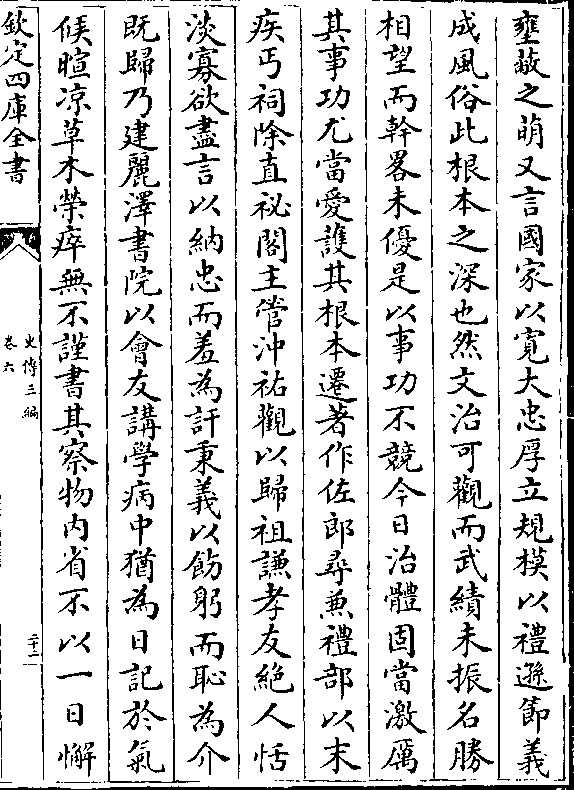 壅蔽之萌又言國家以寛大忠厚立規模以禮遜節義
成風俗此根本之深也然文治可觀而武績未振名勝
相望而幹畧未優是以事功不競今日治體固當激厲
其事功尤當愛護其根本遷著作佐郎尋兼禮部以末
疾丐祠除直祕閣主管沖祐觀以歸祖謙孝友絶人恬
淡寡欲盡言以納忠而羞為訐秉義以飭躬而恥為介
既歸乃建麗澤書院以會友講學病中猶為日記於氣
候暄凉草木榮瘁無不謹書其察物内省不以一日懈
欽定四庫全書
史傳三編
卷六
二十二